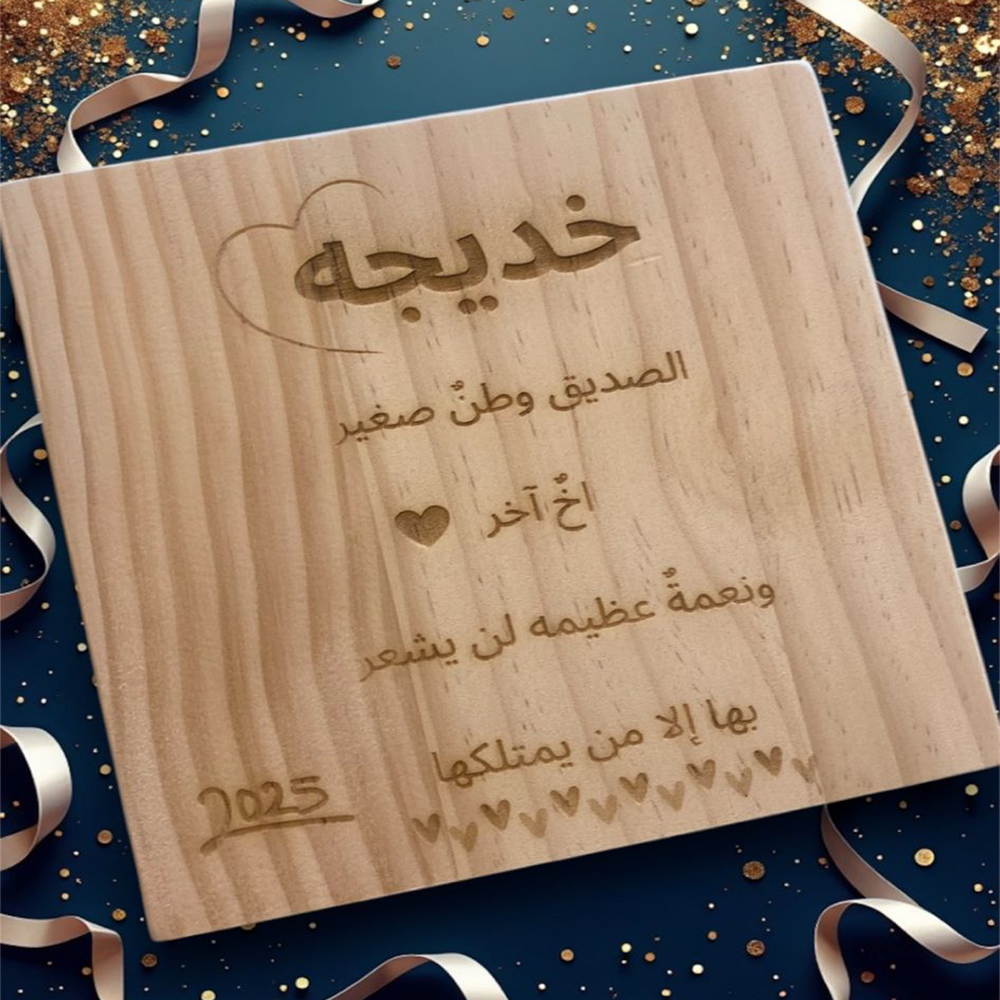 خديجه
الصديق وطنٌ صغير
اخٌ آخر
ونعمةٌ عظيمه لن يشعر
بها إلا من يمتلكها
2025